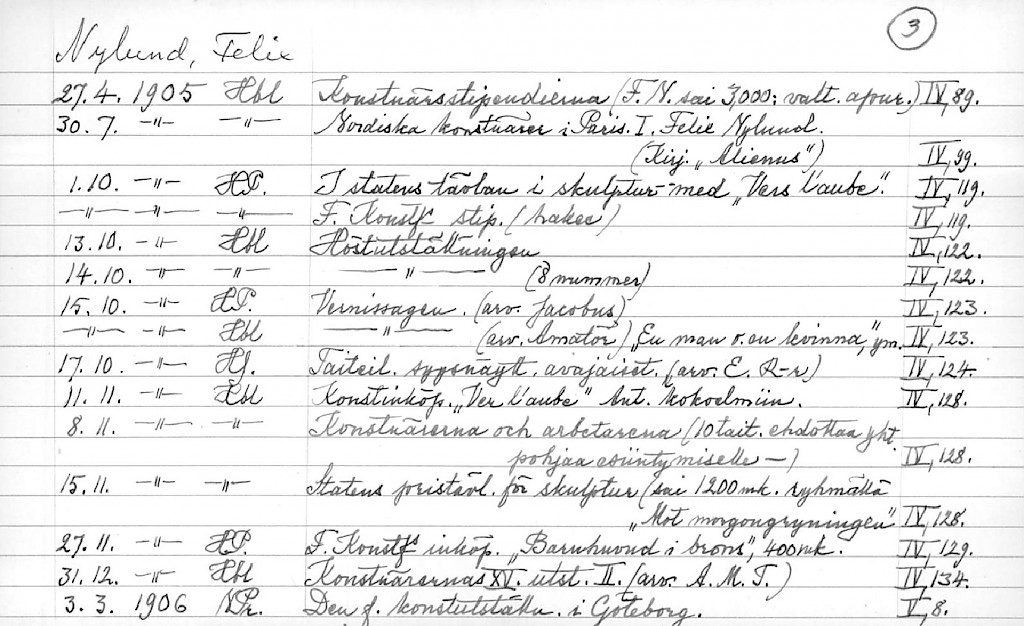 3
Nylund, Felix
27.4. 1905 Hbl Konstnärsstipendierna (F.N. sai 3,000: valt. apur.) IV, 89.
30.7. -"- -"- Nordiska konstnärer i Paris. I. Felix Nylund.
(Kirj. „Alienus") IV, 99.
1.10. -"- HP. I statens tävlan i skulptur med „Vers l'aube". IV, 119.
-"- -"- -"- F. Konstf. stip. (hakee) IV, 119.
13.10. -"- Hbl Höstutställningen IV, 122.
14.10. -"- -"- -"- (8 nummer) IV, 122.
15.10. -"- HP. Vernissagen. (arv. Jacobus) IV, 123.
-"- -"- Hbl -"- (arv. Amatör) „En man o. en kvinna," ym. IV, 123.
17.10. -"- Taiteil. syysnäytt. avajaiset. (arv. E. R-r) IV, 124.
11.11. -"- Hbl Konstinköp. „Ver l'aube" Ant. kokoelmiin. IV, 128.
8.11. -"- -"- Konstnärerna och arbetarena (10 tait. ehdottaa yht.
pohjaa esiintymiselle —) IV, 128.
15.11. -"- -"- Statens pristävl. för skulptur (sai 1200 mk. ryhmällä
„Mot morgongryningen" IV, 128.
27.11. -"- HP. F. Konstf. inköp. „Barnhuvud i brons", 400 mk. IV, 129.
31.12. -"- Hbl Konstnärernas XV. utst. II. (arv. A.M.T.) IV, 134.
3.3. 1906 Den f. konstutställn. i Göteborg. V, 8.